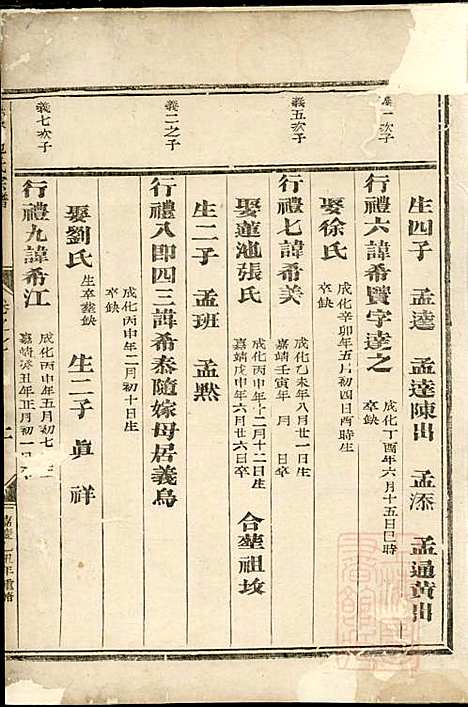 義一次子
生四子 孟逵 孟達陳出 孟添 孟通黃出
行禮六諱希賢字達之
成化丁酉年六月十五日巳時
卒缺
娶徐氏
成化辛卯年五月初四日酉時生
卒缺
義五次子
行禮七諱希美
成化乙未年八月廿一日生
嘉靖壬寅年 月 日卒
娶蓮池張氏
成化丙申年十二月十二日生
嘉靖戊申年六月廿六日卒
合塟祖坟
生二子 孟班 孟黙
義二之子
行禮八即四三諱希泰隨嫁母居義烏
成化丙申年二月初十日生
卒缺
娶劉氏
生卒塟缺
生二子 眞 祥
義七次子
行禮九諱希江
成化丙申年五月初七
嘉靖癸丑年正月初一日